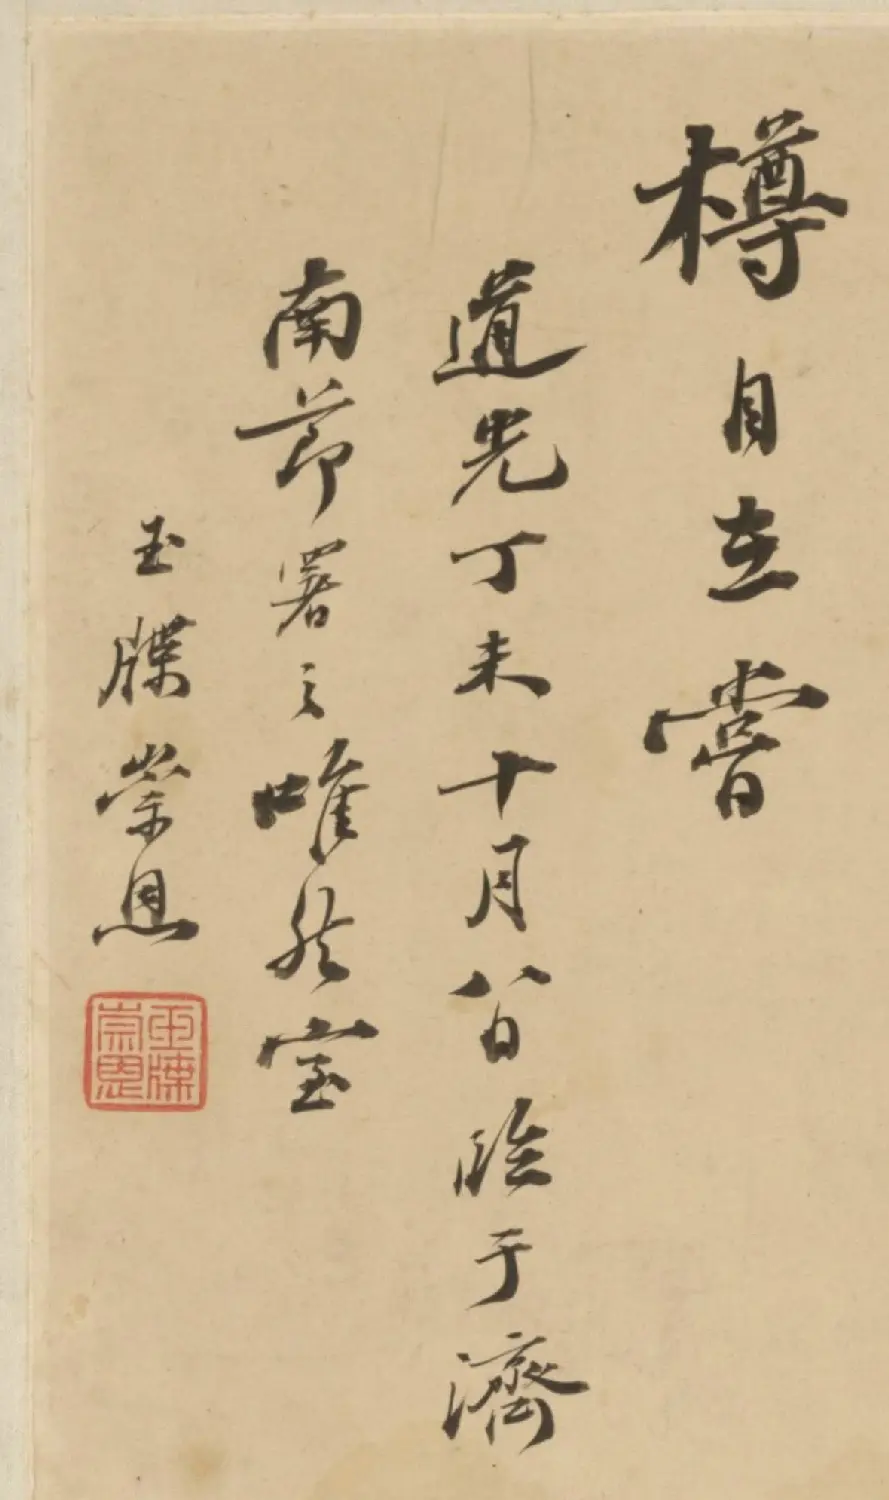 樽自在嘗
道光丁未十月八日臨于濟
南節署之唯然室
玉牒崇恩
玉牒崇恩